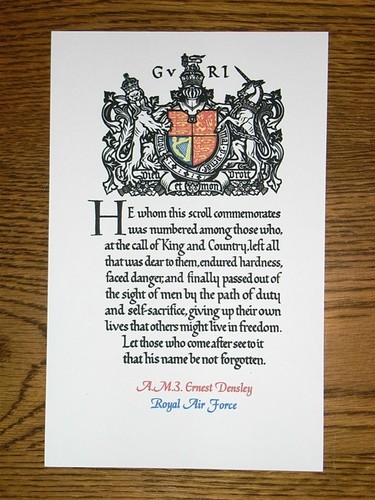 G V RI
Dieu et mon Droit
HE whom this scroll commemorates
was numbered among those who,
at the call of King and Country, left all
that was dear to them, endured hardness,
faced danger, and finally passed out of
the sight of men by the path of duty
and self-sacrifice, giving up their own
lives that others might live in freedom.
Let those who come after see to it
that his name be not forgotten.
A.M.3. Ernest Densley
Royal Air Force